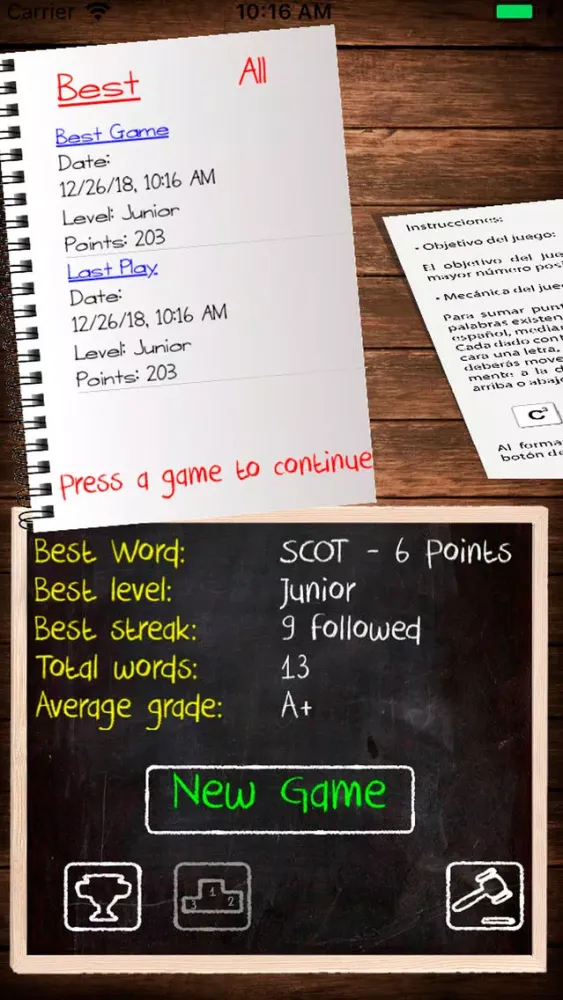 Carrier
10:16 AM
Best
All
Best Game
Date:
12/26/18, 10:16 AM
Level: Junior
Points: 203
Last Play
Date:
12/26/18, 10:16 AM
Level: Junior
Points: 203
Press a game to continue
Instrucciones:
• Objetivo del juego:
El objetivo del
mayor número
• Mecánica del
Para sumar
palabras existen
español,
Cada dado
cara una letra,
deberás
mente a la
arriba o
C
Al
botón
Best Word: SCOT - 6 Points
Best level: Junior
Best streak: 9 followed
Total words: 13
Average grade: A+
New Game
3 1 2